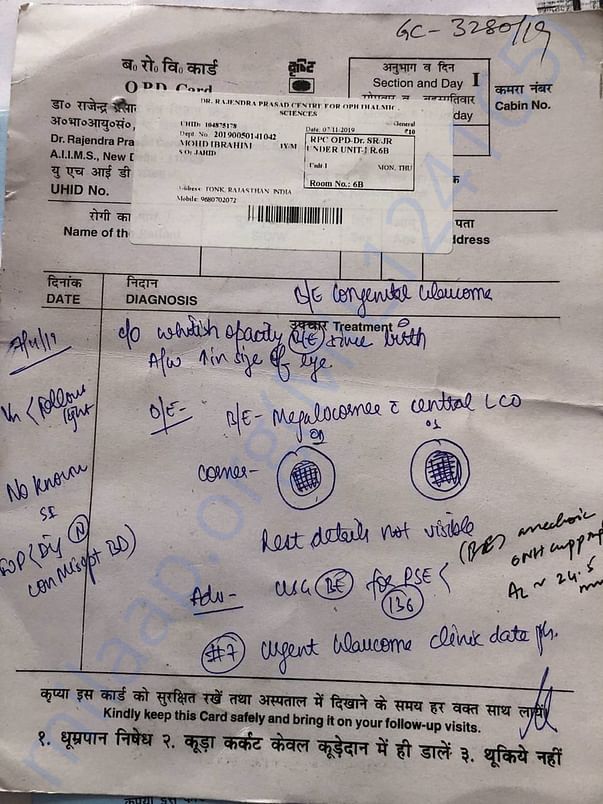 GC - 3280/19
ब० रो० वि० कार्ड
OPD Card
अनुभाग व दिन
Section and Day I
कमरा नंबर
Cabin No.
डा० राजेन्द्र प्रसाद
अ०भा०आयु०सं०,
Dr. Rajendra Pra
A.I.I.M.S., New D
यु एच आई डी
UHID No.
DR. RAJENDRA PRASAD CENTRE FOR OPHTHALMIC
SCIENCES
UHID: 104875178
Date: 07/11/2019
General
₹10
Dept. No. 20190050141042
MOHD IBRAHIM 1Y/M
S/O: JAHID
RPC OPD-Dr. SR/JR
UNDER UNIT-I R.6B
Unit I MON, THU
Room No.: 6B
Address: TONK, RAJASTHAN, INDIA
Mobile: 9680702072
रोगी का
Name of the
पता
ddress
दिनांक
DATE
निदान
DIAGNOSIS
B/E Congenital Glaucoma
उपचार Treatment
7/11/19
c/o whitish opacity (B/E) since birth
A/w ↑ in size of eye.
Vn < follows light
O/E- B/E- Megalocornea c central LCO
Cornea-
No known SI
Rest details not visible
(BE) anechoic
ONH cupping
AL ~ 24.5 mm
IOP < Dig (N)
Adv- USG (BE) for PSE <
(136)
(#7) Urgent Glaucoma clinic date pls.
कृप्या इस कार्ड को सुरक्षित रखें तथा अस्पताल में दिखाने के समय हर वक्त साथ लायें
Kindly keep this Card safely and bring it on your follow-up visits.
१. धूम्रपान निषेध २. कूड़ा कर्कट केवल कूड़ेदान में ही डालें ३. थूकिये नहीं